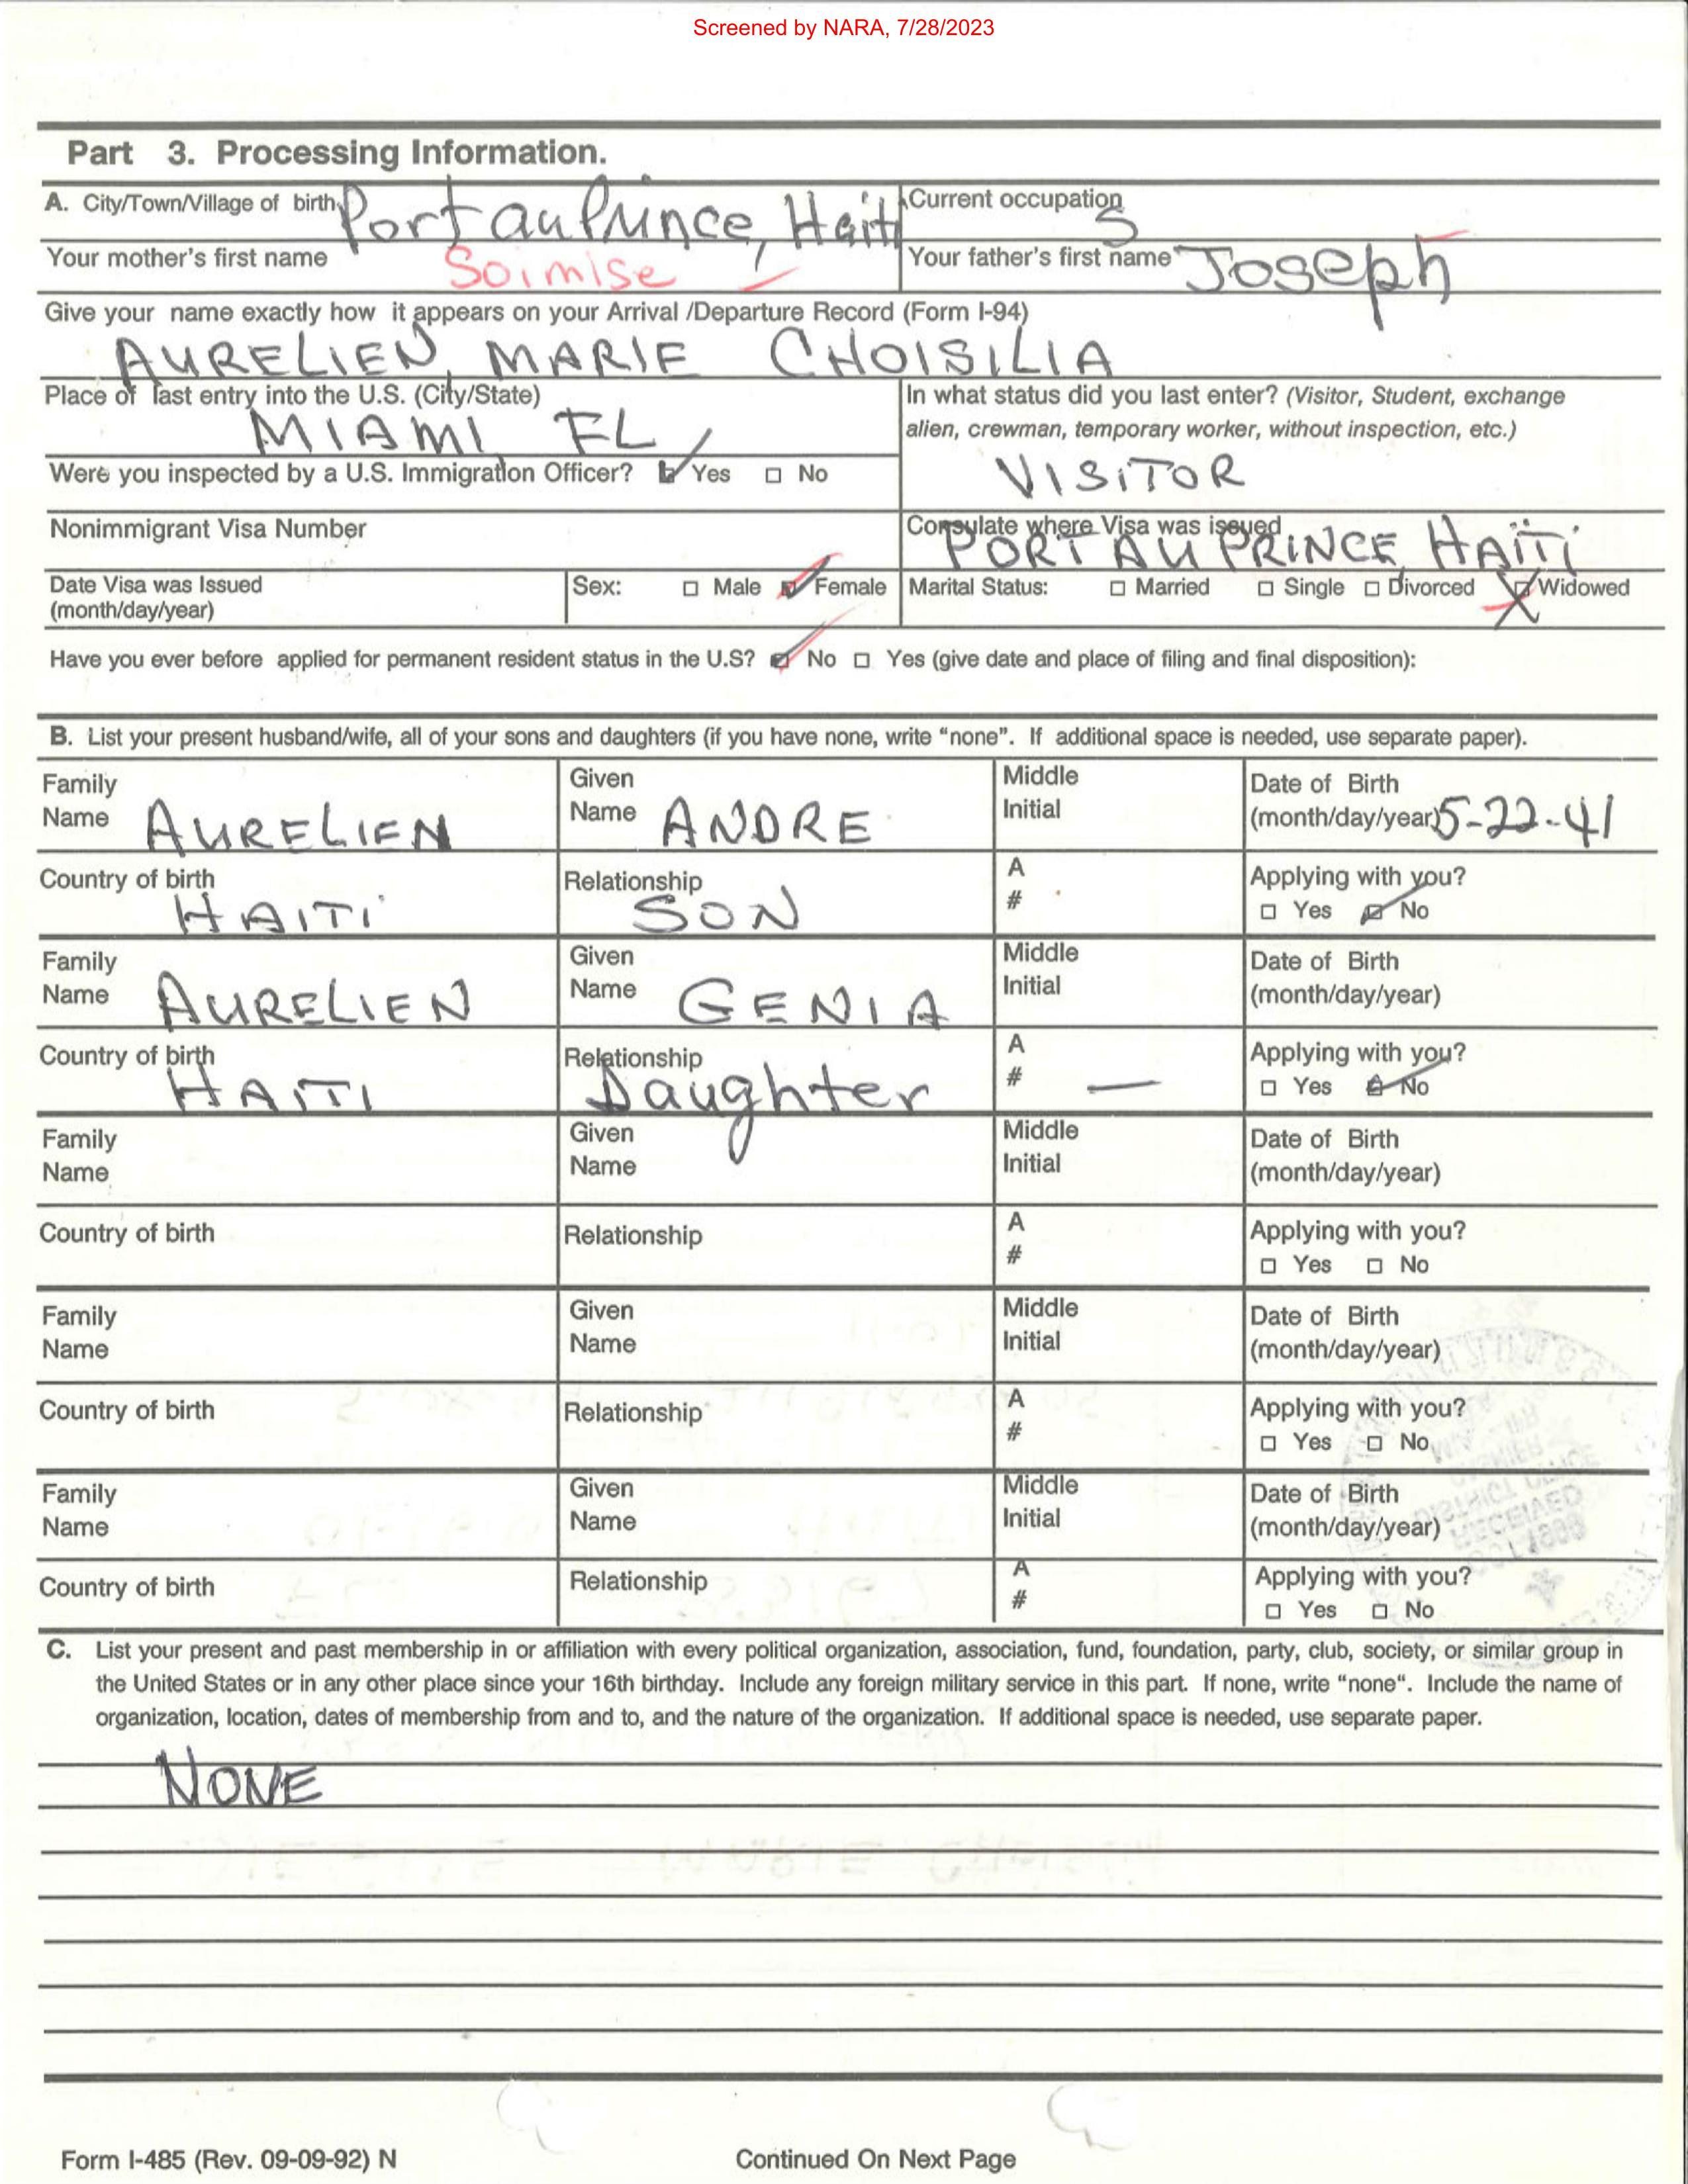 Screened by NARA, 7/28/2023
Part 3. Processing Information.
A. City/Town/Village of birth Port au Prince, Haiti Current occupation S
Your mother's first name Soimise Your father's first name Joseph
Give your name exactly how it appears on your Arrival /Departure Record (Form I-94)
AURELIEN, MARIE CHOISILIA
Place of last entry into the U.S. (City/State)
MIAMI FL
In what status did you last enter? (Visitor, Student, exchange
alien, crewman, temporary worker, without inspection, etc.)
VISITOR
Were you inspected by a U.S. Immigration Officer? Yes No
Nonimmigrant Visa Number
Consulate where Visa was issued
PORT AU PRINCE, HAÏTI
Date Visa was Issued
(month/day/year)
Sex: Male Female
Marital Status: Married Single Divorced Widowed
Have you ever before applied for permanent resident status in the U.S? No Yes (give date and place of filing and final disposition):
B. List your present husband/wife, all of your sons and daughters (if you have none, write “none”. If additional space is needed, use separate paper).
Family Name AURELIEN
Given Name ANDRE
Middle Initial
Date of Birth (month/day/year) 5-22-41
Country of birth HAITI
Relationship SON
A #
Applying with you? Yes No
Family Name AURELIEN
Given Name GENIA
Middle Initial
Date of Birth (month/day/year)
Country of birth HAITI
Relationship Daughter
A # —
Applying with you? Yes No
Family Name
Given Name
Middle Initial
Date of Birth (month/day/year)
Country of birth
Relationship
A #
Applying with you? Yes No
Family Name
Given Name
Middle Initial
Date of Birth (month/day/year)
Country of birth
Relationship
A #
Applying with you? Yes No
Family Name
Given Name
Middle Initial
Date of Birth (month/day/year)
Country of birth
Relationship
A #
Applying with you? Yes No
C. List your present and past membership in or affiliation with every political organization, association, fund, foundation, party, club, society, or similar group in
the United States or in any other place since your 16th birthday. Include any foreign military service in this part. If none, write “none“. Include the name of
organization, location, dates of membership from and to, and the nature of the organization. If additional space is needed, use separate paper.
NONE
Form I-485 (Rev. 09-09-92) N
Continued On Next Page